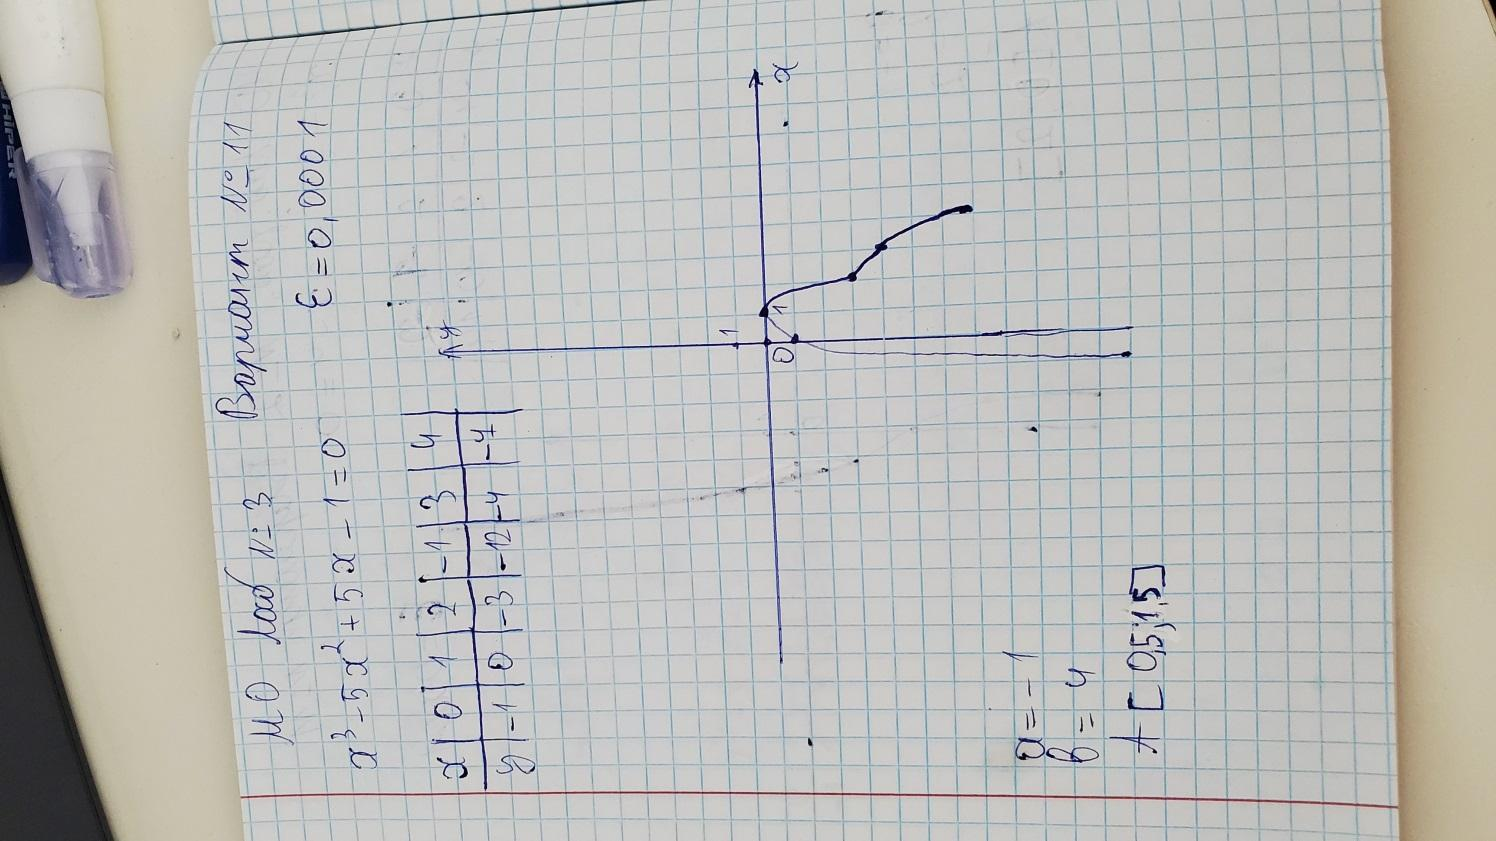 МО Лаб №3 Вариант №11
x³-5x²+5x-1=0 ε=0,0001
x 0 1 2 -1 3 4
y -1 0 -3 -12 -4 -7
y
1
0 1 x
a=-1
b=4
[0,5;1,5]